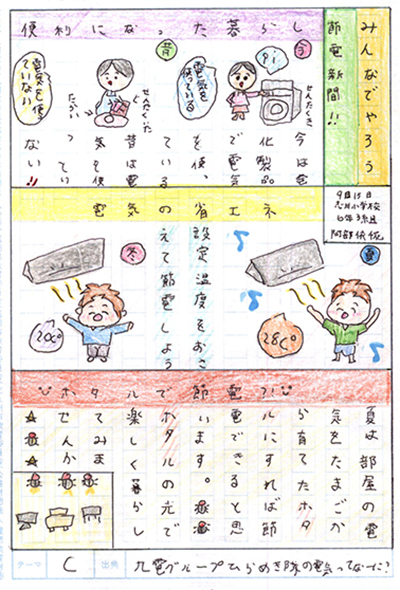 みんなでやろう
節電新聞!!
9月15日
志井小学校
6年3組
阿部
便利になった暮らし
今
ピッ
せんたくき
電気を使っている
昔
せんたく板
たらい
電気を使っていない
今は電
化製品
で電気
を使っ
ている
昔は電
気を使
ってい
ない!!
電気の省エネ
夏
28C°
設定温度をおさ
えて節電しよう
冬
20C°
ホタルで節電?!
夏は部屋の電
気をたまごか
ら育てたホタ
ルにすれば節
電できると思
います。
ホタルの光で
楽しく暮らし
てみま
せんか
テーマ C 出典 九電グループひらめき隊の電気ってなーに?